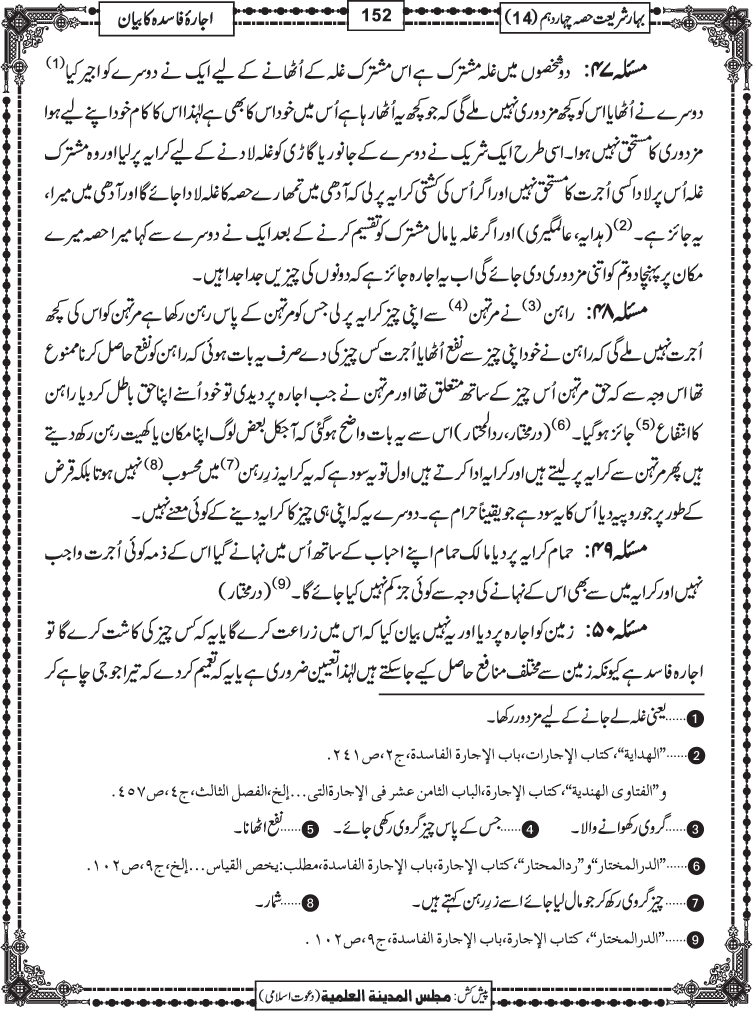 بہار شریعت حصہ چہاردہم (14)
152
اجارۂ فاسدہ کا بیان
مسئلہ ۴۷: دو شخصوں میں غلہ مشترک ہے اس مشترک غلہ کے اُٹھانے کے لیے ایک نے دوسرے کو اجیر کیا(1)
دوسرے نے اُٹھایا اس کو کچھ مزدوری نہیں ملے گی کہ جو کچھ یہ اُٹھا رہا ہے اُس میں خود اس کا بھی ہے لہٰذا اس کا کام خود اپنے لیے ہوا
مزدوری کا مستحق نہیں ہوا۔ اسی طرح ایک شریک نے دوسرے کے جانور یا گاڑی کو غلہ لادنے کے لیے کرایہ پر لیا اور وہ مشترک
غلہ اُس پر لادا کسی اُجرت کا مستحق نہیں اور اگر اُس کی کشتی کرایہ پر لی کہ آدھی میں تمھارے حصہ کا غلہ لادا جائے گا اور آدھی میں میرا،
یہ جائز ہے۔(2) (ہدایہ، عالمگیری) اور اگر غلہ یا مال مشترک کو تقسیم کرنے کے بعد ایک نے دوسرے سے کہا میرا حصہ میرے
مکان پر پہنچا دو تم کو اتنی مزدوری دی جائے گی اب یہ اجارہ جائز ہے کہ دونوں کی چیزیں جدا جدا ہیں۔
مسئلہ ۴۸: راہن(3) نے مرتہن(4) سے اپنی چیز کرایہ پر لی جس کو مرتہن کے پاس رہن رکھا ہے مرتہن کو اس کی کچھ
اُجرت نہیں ملے گی کہ راہن نے خود اپنی چیز سے نفع اُٹھایا اُجرت کس چیز کی دے صرف یہ بات ہوئی کہ راہن کو نفع حاصل کرنا ممنوع
تھا اس وجہ سے کہ حق مرتہن اُس چیز کے ساتھ متعلق تھا اور مرتہن نے جب اجارہ پر دیدی تو خود اُسنے اپنا حق باطل کردیا راہن
کا انتفاع(5) جائز ہوگیا۔(6) (درمختار، ردالمحتار) اس سے یہ بات واضح ہوگئی کہ آجکل بعض لوگ اپنا مکان یا کھیت رہن رکھ دیتے
ہیں پھر مرتہن سے کرایہ پر لیتے ہیں اور کرایہ ادا کرتے ہیں اول تو یہ سود ہے کہ یہ کرایہ زرِ رہن(7) میں محسوب(8) نہیں ہوتا بلکہ قرض
کے طور پر جو روپیہ دیا اُس کا یہ سود ہے جو یقیناً حرام ہے۔ دوسرے یہ کہ اپنی ہی چیز کا کرایہ دینے کے کوئی معنے نہیں۔
مسئلہ ۴۹: حمام کرایہ پر دیا مالک حمام اپنے احباب کے ساتھ اُس میں نہانے گیا اس کے ذمہ کوئی اُجرت واجب
نہیں اور کرایہ میں سے بھی اس کے نہانے کی وجہ سے کوئی جز کم نہیں کیا جائے گا۔(9) (درمختار)
مسئلہ ۵۰: زمین کو اجارہ پر دیا اور یہ نہیں بیان کیا کہ اس میں زراعت کرے گا یا یہ کہ کس چیز کی کاشت کرے گا تو
اجارہ فاسد ہے کیونکہ زمین سے مختلف منافع حاصل کیے جاسکتے ہیں لہٰذا تعیین ضروری ہے یا یہ کہ تعمیم کردے کہ تیرا جو جی چاہے کر
1......یعنی غلہ لے جانے کے لیے مزدور رکھا۔
2......"الهداية"، کتاب الإجارات، باب الإجارة الفاسدة، ج۲، ص۲۴۱.
و "الفتاوى الهندية"، کتاب الإجارة، الباب الثامن عشر فی الإجارة التی...إلخ، الفصل الثالث، ج٤، ص٤٥٧.
3......گروی رکھوانے والا۔ 4......جس کے پاس چیز گروی رکھی جائے۔ 5......نفع اٹھانا۔
6......"الدرالمختار" و "ردالمحتار"، کتاب الإجارة، باب الإجارة الفاسدة، مطلب: یخص القیاس...إلخ، ج۹، ص۱۰۲.
7......چیز گروی رکھ کر جو مال لیا جائے اسے زرِ رہن کہتے ہیں۔ 8......شمار۔
9......"الدرالمختار"، کتاب الإجارة، باب الإجارة الفاسدة، ج۹، ص۱۰۲.
پیش کش: مجلس المدینة العلمیة (دعوت اسلامی)